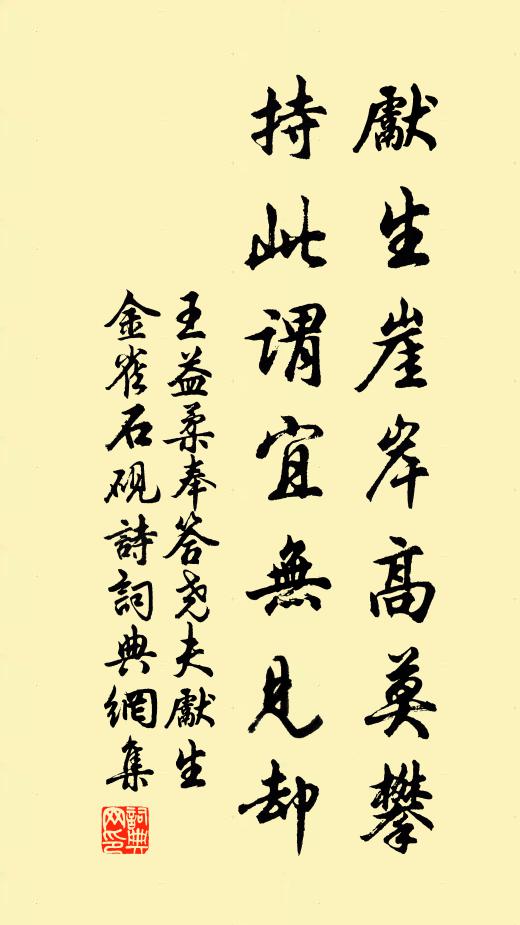 獻生崖岸高莫攀
持此謂宜無見却
王益柔奉答尧夫獻生
金雀石硯詩詞典網集
詞典
网印